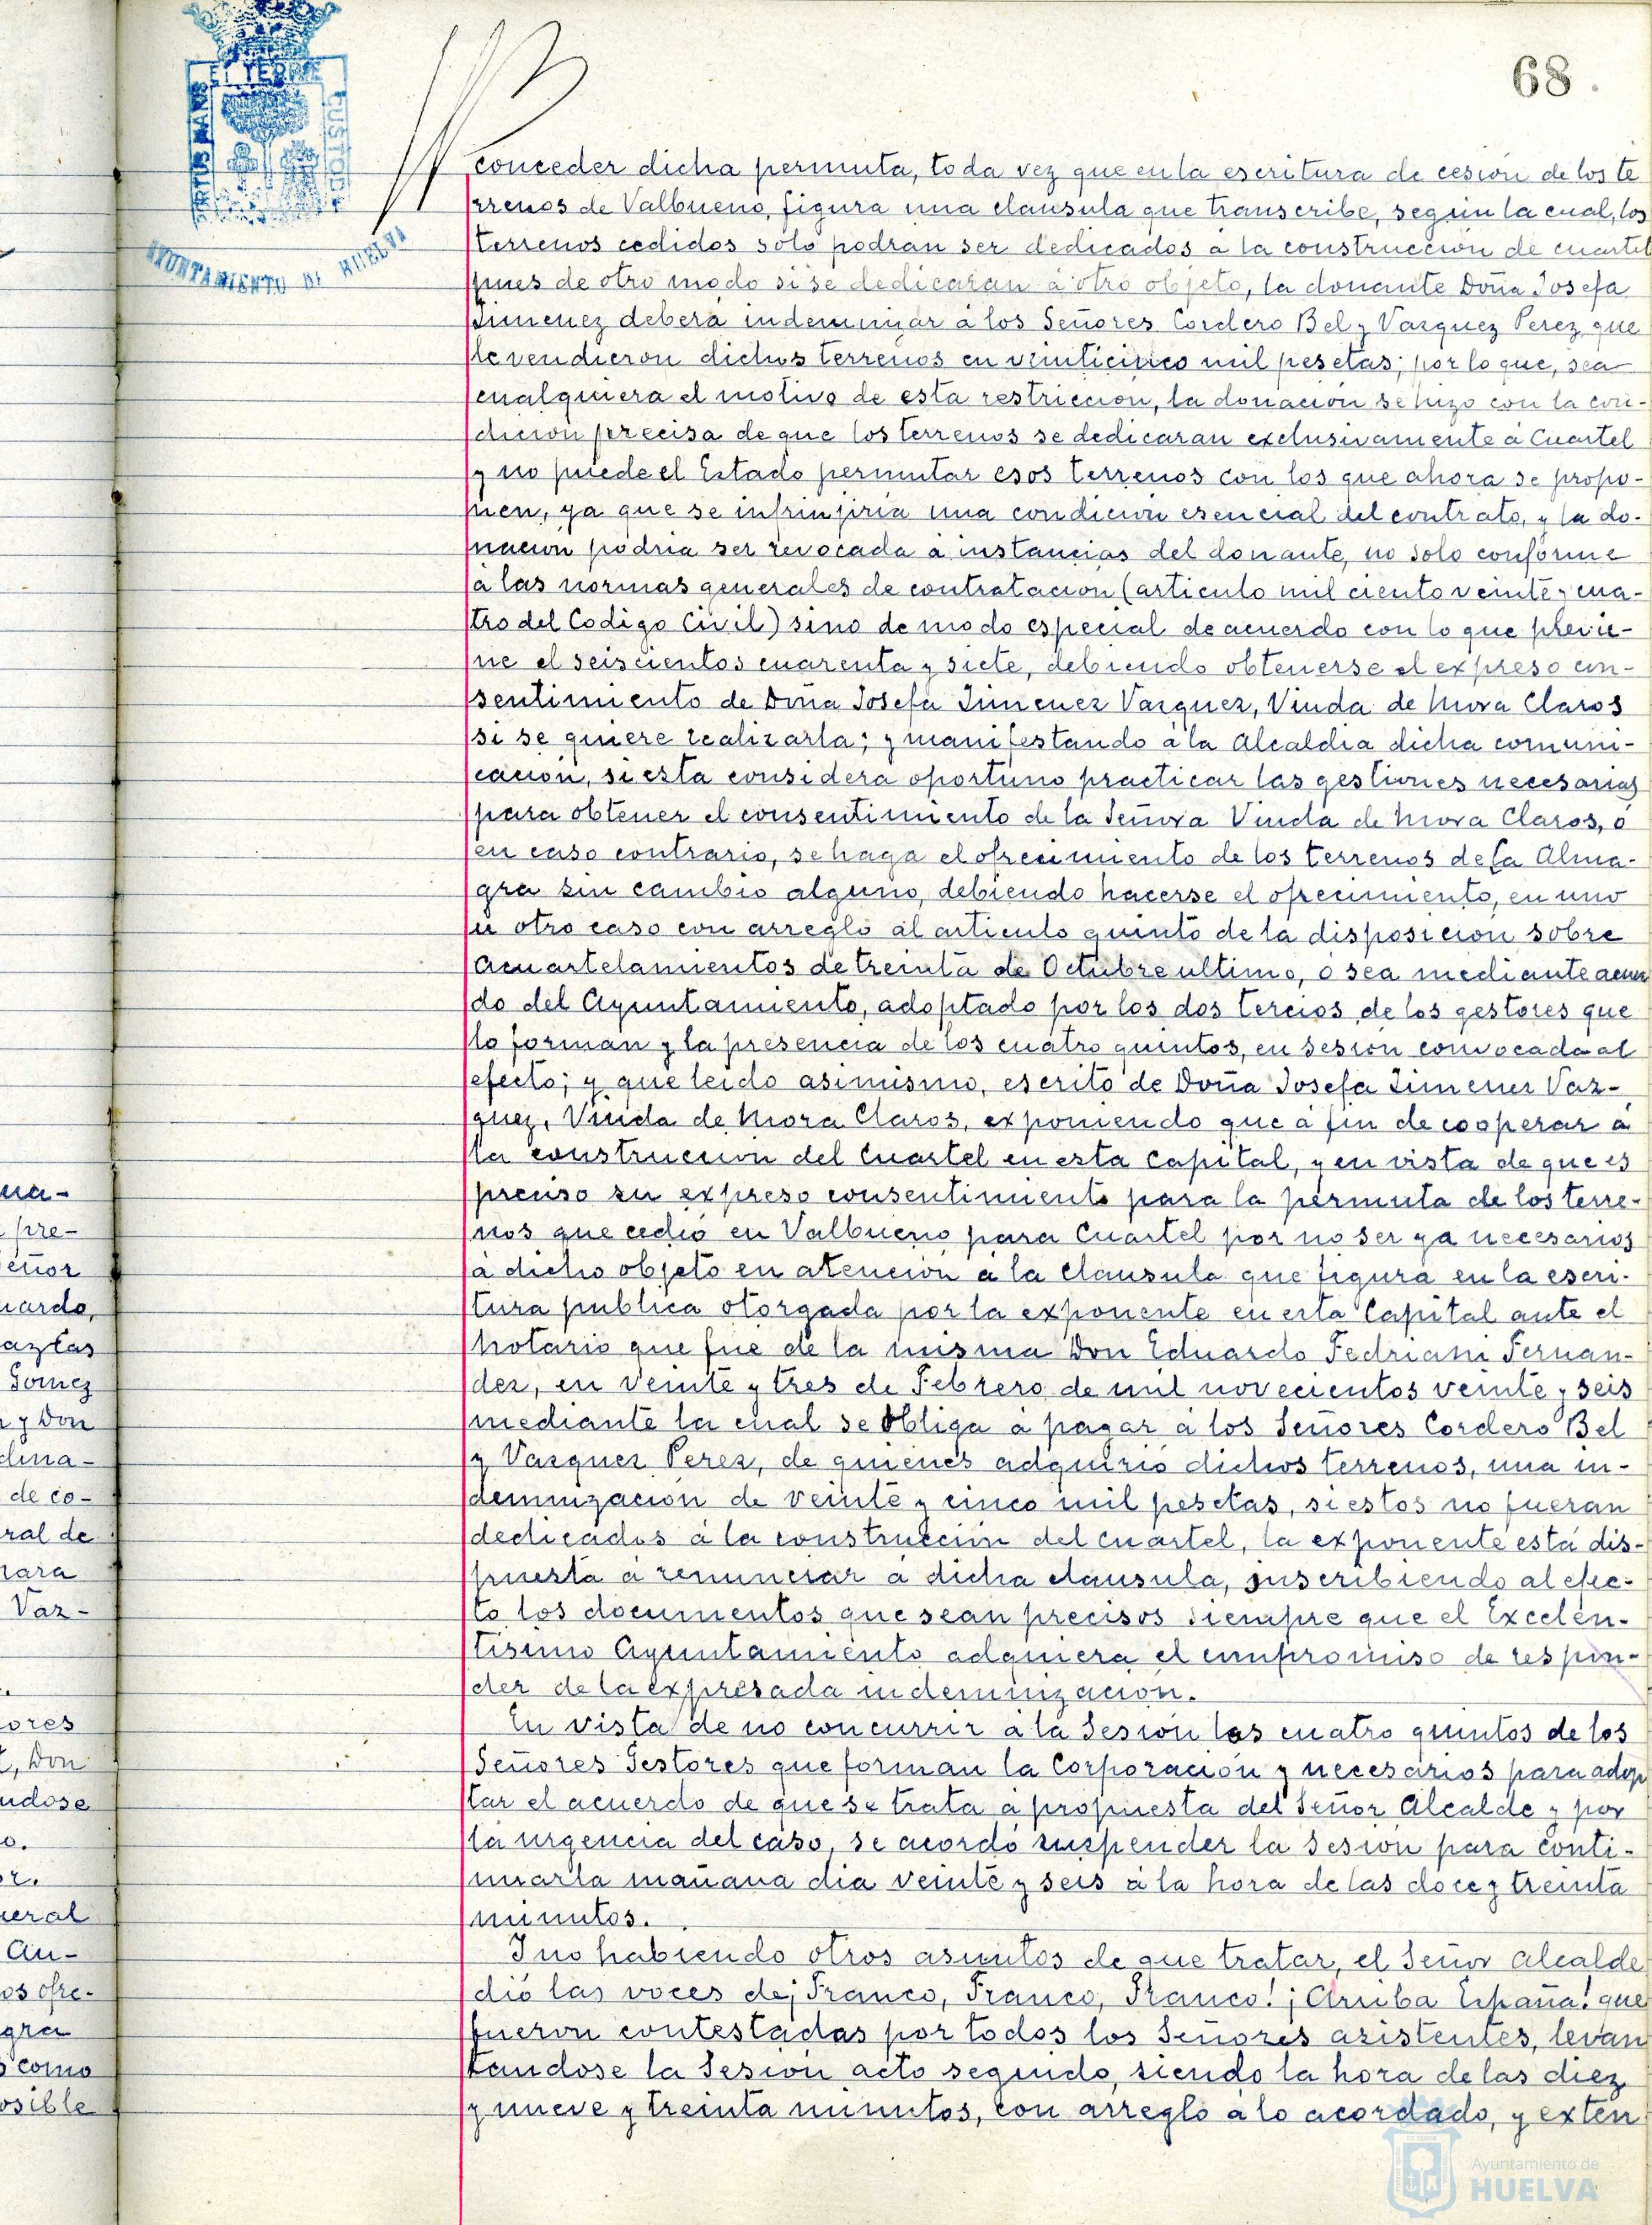 68.
conceder dicha permuta, toda vez que en la escritura de cesion de los te
rrenos de Valbueno, figura una clausula que transcribe, segun la cual, los
terrenos cedidos solo podran ser dedicados a la construccion de cuartel
pues de otro modo si se dedicaran a otro objeto, la donante Doña Josefa
Jimenez debera indemnizar a los Señores Cordero Bel y Vazquez Perez que
le vendieron dichos terrenos en veinticinco mil pesetas; por lo que, sea
cualquiera el motivo de esta restriccion, la donacion se hizo con la con-
dicion precisa de que los terrenos se dedicaran exclusivamente a Cuartel
y no puede el Estado permutar esos terrenos con los que ahora se propo-
nen, ya que se infrinjiria una condicion esencial del contrato, y la do-
nacion podria ser revocada a instancias del donante, no solo conforme
a las normas generales de contratacion (articulo mil ciento veinte y cua-
tro del Codigo Civil) sino de modo especial de acuerdo con lo que previe-
ne el seiscientos cuarenta y siete, debiendo obtenerse el expreso con-
sentimiento de Doña Josefa Jimenez Vazquez, Viuda de Mora Claros
si se quiere realizarla; y manifestando a la Alcaldia dicha comuni-
cacion, si esta considera oportuno practicar las gestiones necesarias
para obtener el consentimiento de la Señora Viuda de Mora Claros, o
en caso contrario, se haga el ofrecimiento de los terrenos de la Alma-
gra sin cambio alguno, debiendo hacerse el ofrecimiento, en uno
u otro caso con arreglo al articulo quinto de la disposicion sobre
Acuartelamientos de treinta de Octubre ultimo, o sea mediante acuer
do del Ayuntamiento, adoptado por los dos tercios de los gestores que
lo forman y la presencia de los cuatro quintos, en sesion convocada al
efecto; y que leido asimismo, escrito de Doña Josefa Jimenez Vaz-
quez, Viuda de Mora Claros, exponiendo que a fin de cooperar a
la construccion del Cuartel en esta Capital, y en vista de que es
preciso su expreso consentimiento para la permuta de los terre-
nos que cedio en Valbueno para Cuartel por no ser ya necesarios
a dicho objeto en atencion a la clausula que figura en la escri-
tura publica otorgada por la exponente en esta Capital ante el
Notario que fue de la misma Don Eduardo Fedriani Fernan-
dez, en veinte y tres de Febrero de mil novecientos veinte y seis
mediante la cual se obliga a pagar a los Señores Cordero Bel
y Vazquez Perez, de quienes adquirio dichos terrenos, una in-
demnizacion de veinte y cinco mil pesetas, si estos no fueran
dedicados a la construccion del cuartel, la exponente está dis-
puesta a renunciar a dicha clausula, suscribiendo al efec-
to los documentos que sean precisos siempre que el Excelen-
tisimo Ayuntamiento adquiera el compromiso de respon-
der de la expresada indemnizacion.
En vista de no concurrir a la Sesion los cuatro quintos de los
Señores Gestores que forman la Corporacion y necesarios para adop
tar el acuerdo de que se trata a propuesta del Señor Alcalde y por
la urgencia del caso, se acordó suspender la Sesion para conti-
nuarla mañana dia veinte y seis a la hora de las doce y treinta
minutos.
Y no habiendo otros asuntos de que tratar, el Señor Alcalde
dió las voces de ¡Franco, Franco, Franco! ¡Arriba España! que
fueron contestadas por todos los Señores asistentes, levan
tandose la Sesion acto seguido, siendo la hora de las diez
y nueve y treinta minutos, con arreglo a lo acordado, y exten
AYUNTAMIENTO DE HUELVA
Ayuntamiento de
HUELVA